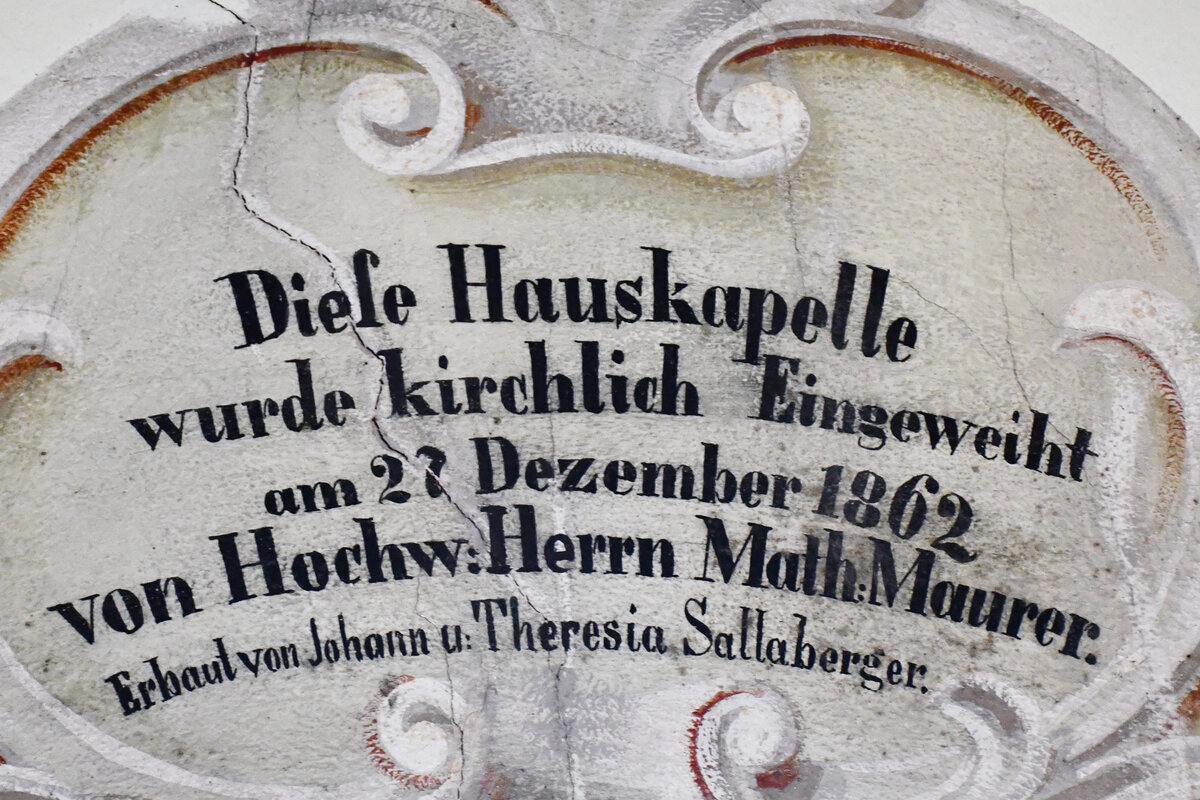 Dieſe Hauskapelle
wurde kirchlich Eingeweiht
am 27 Dezember 1862
von Hochw: Herrn Math: Maurer.
Erbaut von Johann u: Theresia Sallaberger.